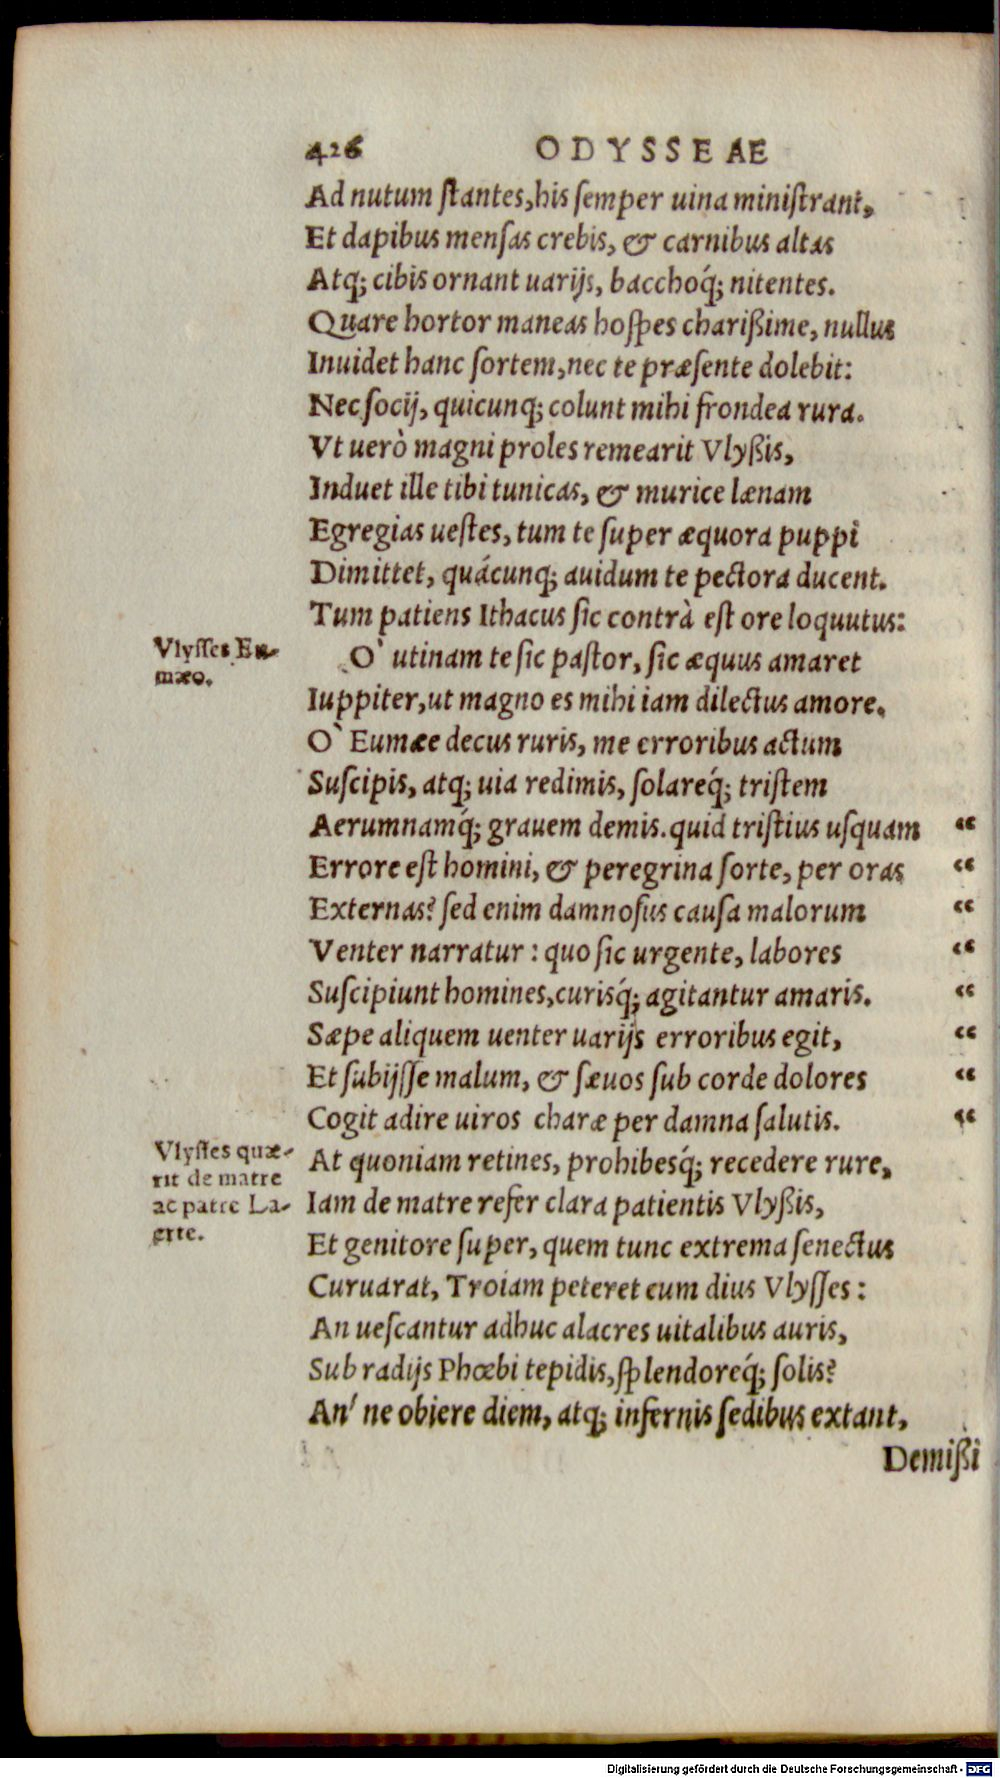 426 ODYSSEAE
Ad nutum ſtantes, his ſemper uina miniſtrant,
Et dapibus menſas crebis, & carnibus altas
Atq; cibis ornant uarijs, bacchoq́; nitentes.
Quare hortor maneas hoſpes charißime, nullus
Inuidet hanc ſortem, nec te præſente dolebit:
Nec ſocij, quicunq; colunt mihi frondea rura.
Vt uerò magni proles remearit Vlyßis,
Induet ille tibi tunicas, & murice lænam
Egregias ueſtes, tum te ſuper æquora puppi
Dimittet, quácunq; auidum te pectora ducent.
Tum patiens Ithacus ſic contrà eſt ore loquutus:
Vlyſſes Eu-
mæo.
O` utinam te ſic paſtor, ſic æquus amaret
Iuppiter, ut magno es mihi iam dilectus amore.
O` Eumæe decus ruris, me erroribus actum
Suſcipis, atq; uia redimis, ſolareq́; triſtem
Aerumnamq́; grauem demis. quid triſtius uſquam “
Errore eſt homini, & peregrina ſorte, per oras “
Externas? ſed enim damnoſus cauſa malorum “
Venter narratur: quo ſic urgente, labores “
Suſcipiunt homines, curisq́; agitantur amaris. “
Sæpe aliquem uenter uarijs erroribus egit, “
Et ſubijſſe malum, & ſæuos ſub corde dolores “
Cogit adire uiros charæ per damna ſalutis. “
Vlyſſes quæ-
rit de matre
ac patre La-
erte.
At quoniam retines, prohibesq́; recedere rure,
Iam de matre refer clara patientis Vlyßis,
Et genitore ſuper, quem tunc extrema ſenectus
Curuarat, Troiam peteret cum dius Vlyſſes:
An ueſcantur adhuc alacres uitalibus auris,
Sub radijs Phœbi tepidis, ſplendoreq́; ſolis?
An' ne obiere diem, atq; infernis ſedibus extant,
Demißi
Digitalisierung gefördert durch die Deutsche Forschungsgemeinschaft - DFG